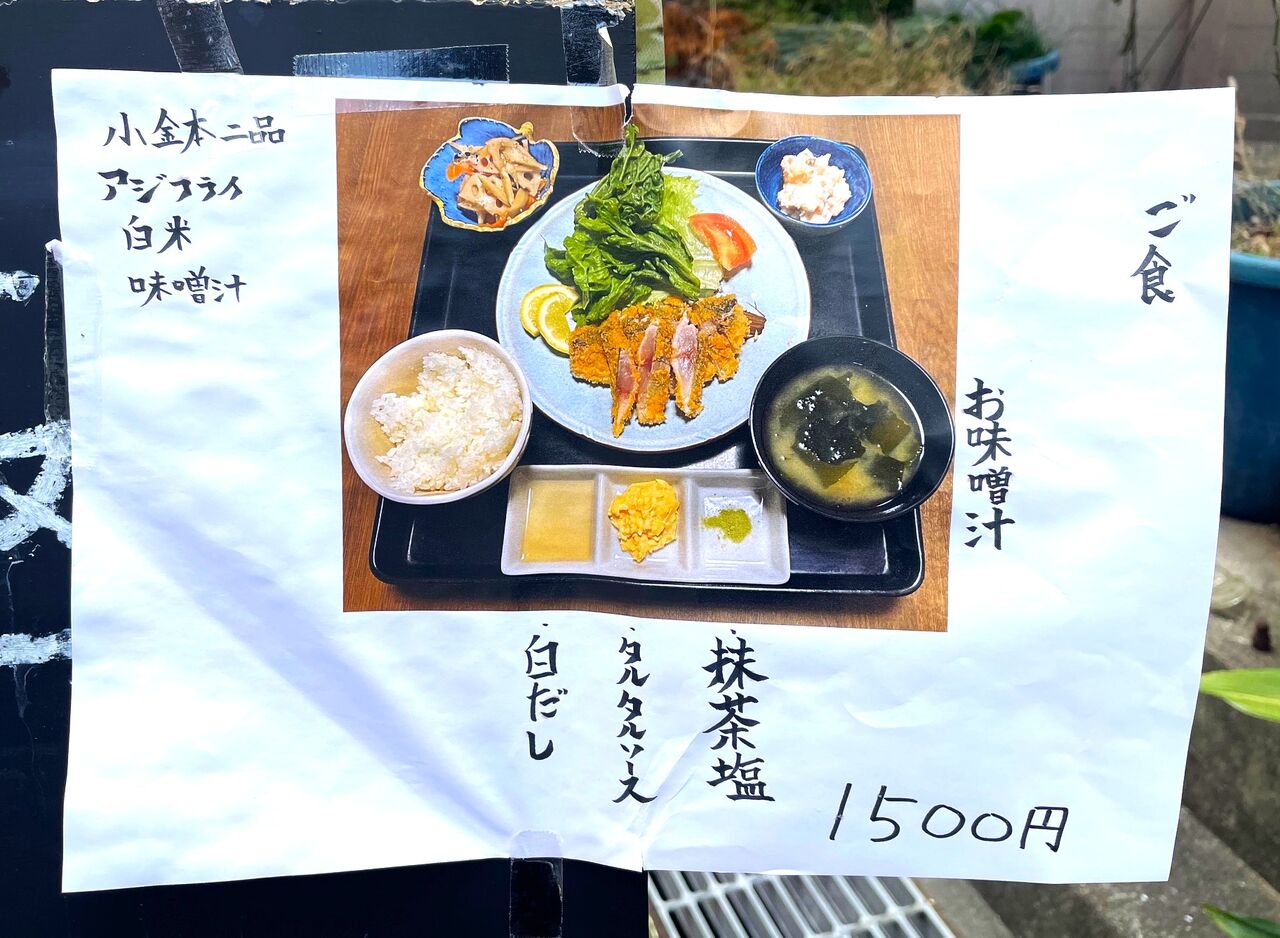 小鉢二品
アジフライ
白米
味噌汁
ご食
お味噌汁
・抹茶塩
・タルタルソース
・白だし
1500円